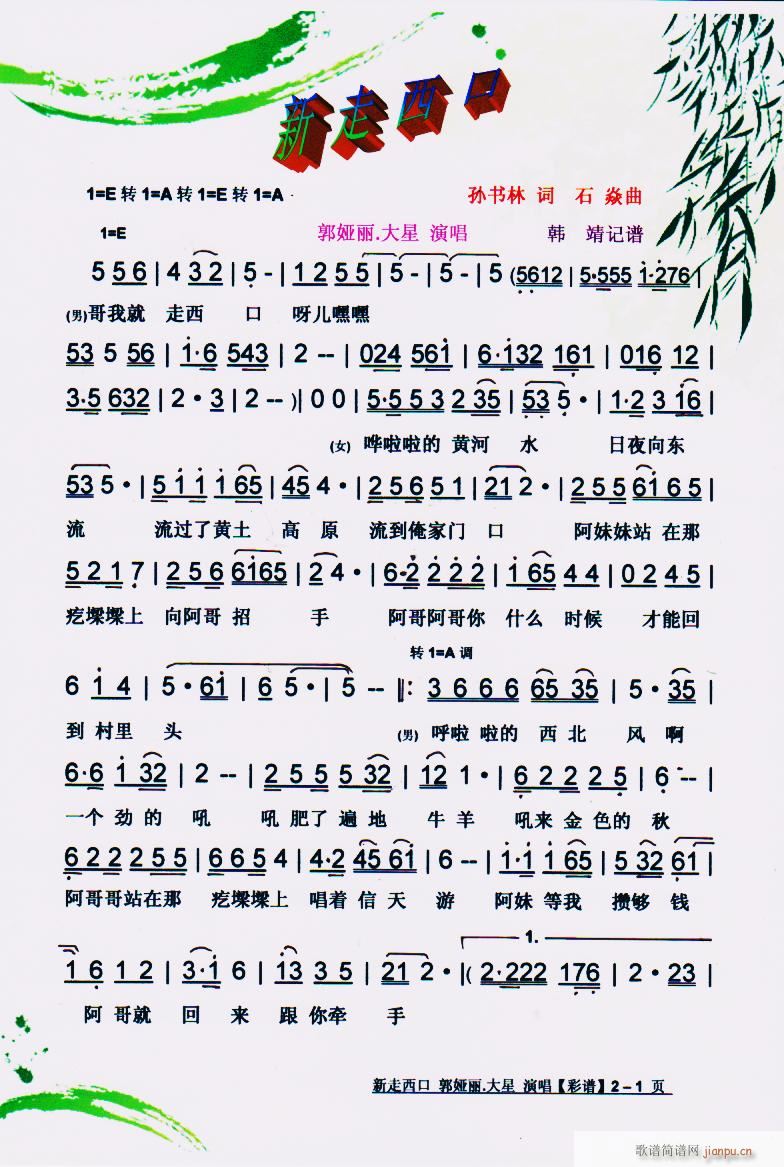 新走西口
1=E 转 1=A 转 1=E 转 1=A
孙书林 词 石 焱曲
1=E
郭娅丽.大星 演唱 韩 靖记谱
5 5 6 | 4 32 | 5 - | 1 2 5 5 | 5 - | 5 - | 5 (5612 | 5·555 1·276 |
(男)哥我就 走西 口 呀儿嘿嘿
53 5 56 | 1·6 543 | 2 -- | 024 561 | 6·132 161 | 016 12 |
3·5 632 | 2·3 | 2 -- )| 0 0 | 5·5 5 3 2 35 | 53 5· | 1·2 3 16 |
(女) 哗啦啦的 黄河 水 日夜向东
53 5· | 5 1 1 1 65 | 45 4· | 2 5 6 5 1 | 21 2· | 2 5 5 61 6 5 |
流 流过了黄土 高 原 流到俺家门 口 阿妹妹站 在那
5 2 1 7 | 2 5 6 6165 | 2 4· | 6·2 2 2 2 | 1 65 4 4 | 0 2 4 5 |
疙墚墚上 向阿哥 招 手 阿哥阿哥你 什么 时候 才能回
转 1=A 调
6 1 4 | 5·61 | 6 5· | 5 -- ‖: 3 6 6 6 65 35 | 5·35 |
到 村里 头 (男) 呼啦 啦的 西 北 风 啊
6·6 1 32 | 2 -- | 2 5 5 5 32 | 12 1· | 6 2 2 2 5 | 6 -- |
一个 劲 的 吼 吼 肥 了 遍 地 牛 羊 吼来 金 色的 秋
6 2 2 2 5 5 | 6 6 5 4 | 4·2 45 61 | 6 -- | 1·1 1 65 | 5 32 61 |
阿哥哥站在那 疙墚墚上 唱着 信 天 游 阿妹 等我 攒够 钱
1 6 1 2 | 3·1 6 | 13 3 5 | 21 2· |( 1. 2·222 176 | 2·23 |
阿 哥就 回 来 跟 你牵 手
新走西口 郭娅丽.大星 演唱【彩谱】2－1 页
歌谱简谱网 jianpu.cn